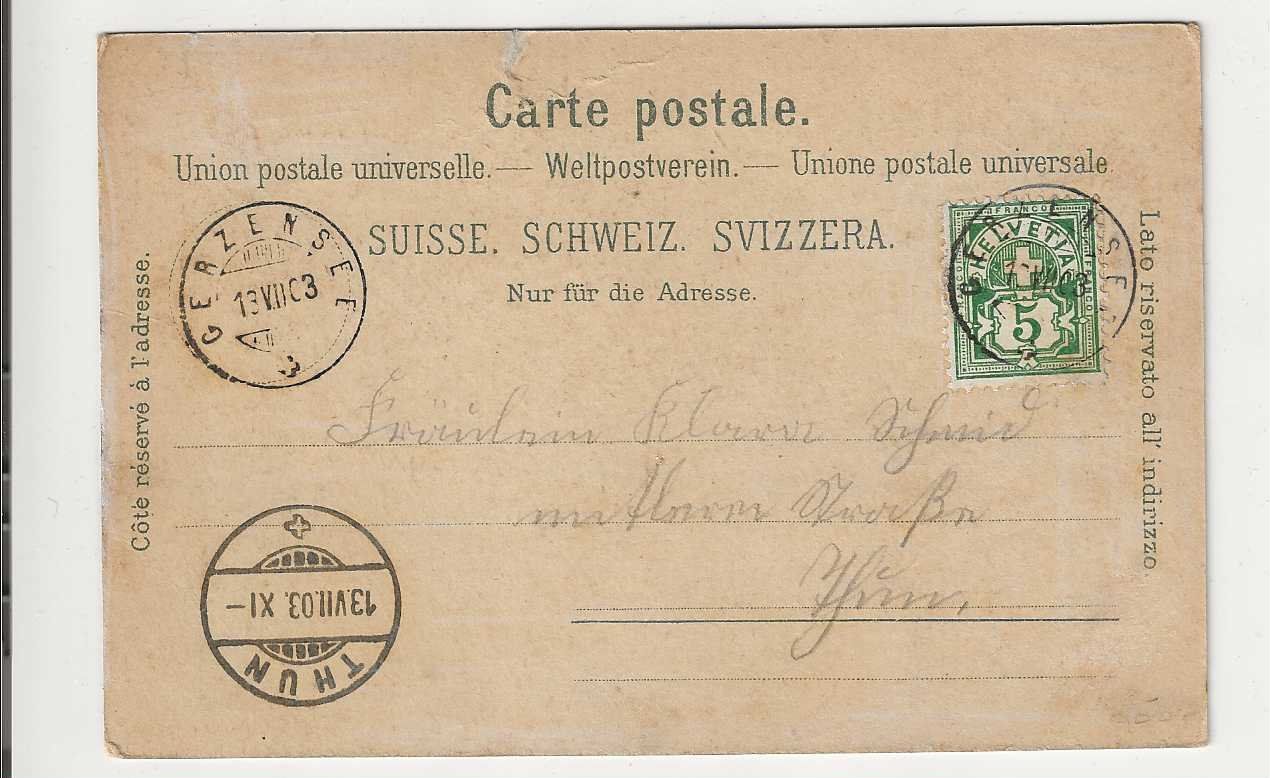 Carte postale.
Union postale universelle. — Weltpostverein. — Unione postale universale
SUISSE. SCHWEIZ. SVIZZERA.
Nur für die Adresse.
Côté réservé à l'adresse.
Lato riservato all' indirizzo.
GERZENSEE
13 VII 03
FRANCO
HELVETIA
5
Fräulein Klara Schmid
mittlere Straße
Thun.
13.VII.03. XI–
THUN